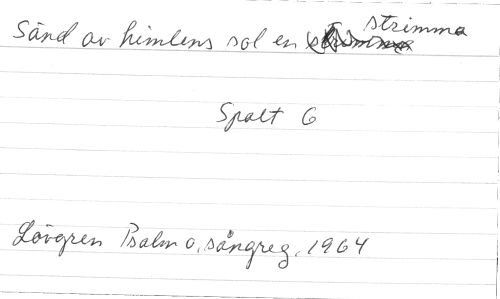 Sänd av himlens sol en strimma
Spalt 6
Lövgren Psalm o. sångreg. 1964